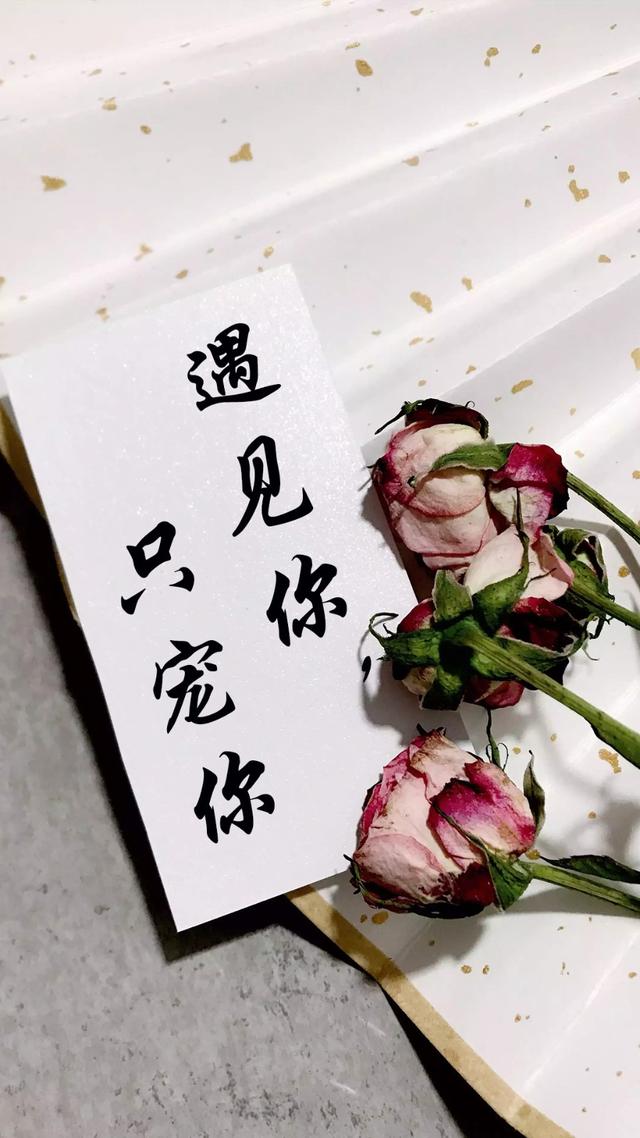 遇见你，
只宠你